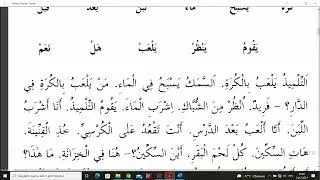 يَقُومُ يَنْظُرُ يَلْعَبُ هَلْ نَعَمْ
اَلتِّلْمِيذُ يَلْعَبُ بِالْكُرَةِ. اَلسَّمَكُ يَسْبَحُ فِي الْمَاءِ. مَنْ يَلْعَبُ بِالْكُرَةِ فِي
الدَّارِ؟ – فَرِيدٌ. اُنْظُرْ مِنَ الشُّبَّاكِ. اِشْرَبِ الْمَاءَ. يَقُومُ التِّلْمِيذُ. أَنَا أَشْرَبُ
اللَّبَنَ. أَنَا أَلْعَبُ بَعْدَ الدَّرْسِ. أَنْتَ تَقْعُدُ عَلَى الْكُرْسِيِّ. خُذِ الْقِنِّينَةَ.
هَاتِ السِّكِّينَ. كُلْ لَحْمَ الْبَقَرِ. أَيْنَ السِّكِّينُ؟ – هُنَا فِي الْخِزَانَةِ. مَا هٰذَا؟